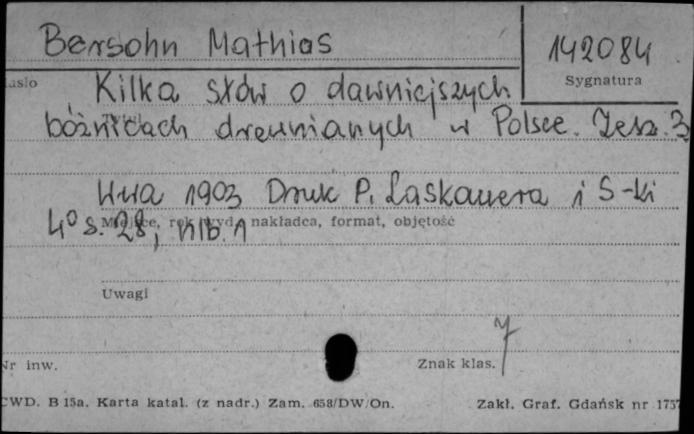 Bersohn Mathias
142084
Sygnatura
Kilka słów o dawniejszych
bóżnicach drewnianych w Polsce. Zesz. 3
W-wa 1903 Druk P. Laskauera i S-ki
Miejsce, rok wyd., nakładca, format, objętość
4° s. 28, nlb. 1
Uwagi
7
Nr inw.
Znak klas.
CWD. B 15a. Karta katal. (z nadr.) Zam. 658/DW/On.
Zakł. Graf. Gdańsk nr 1757